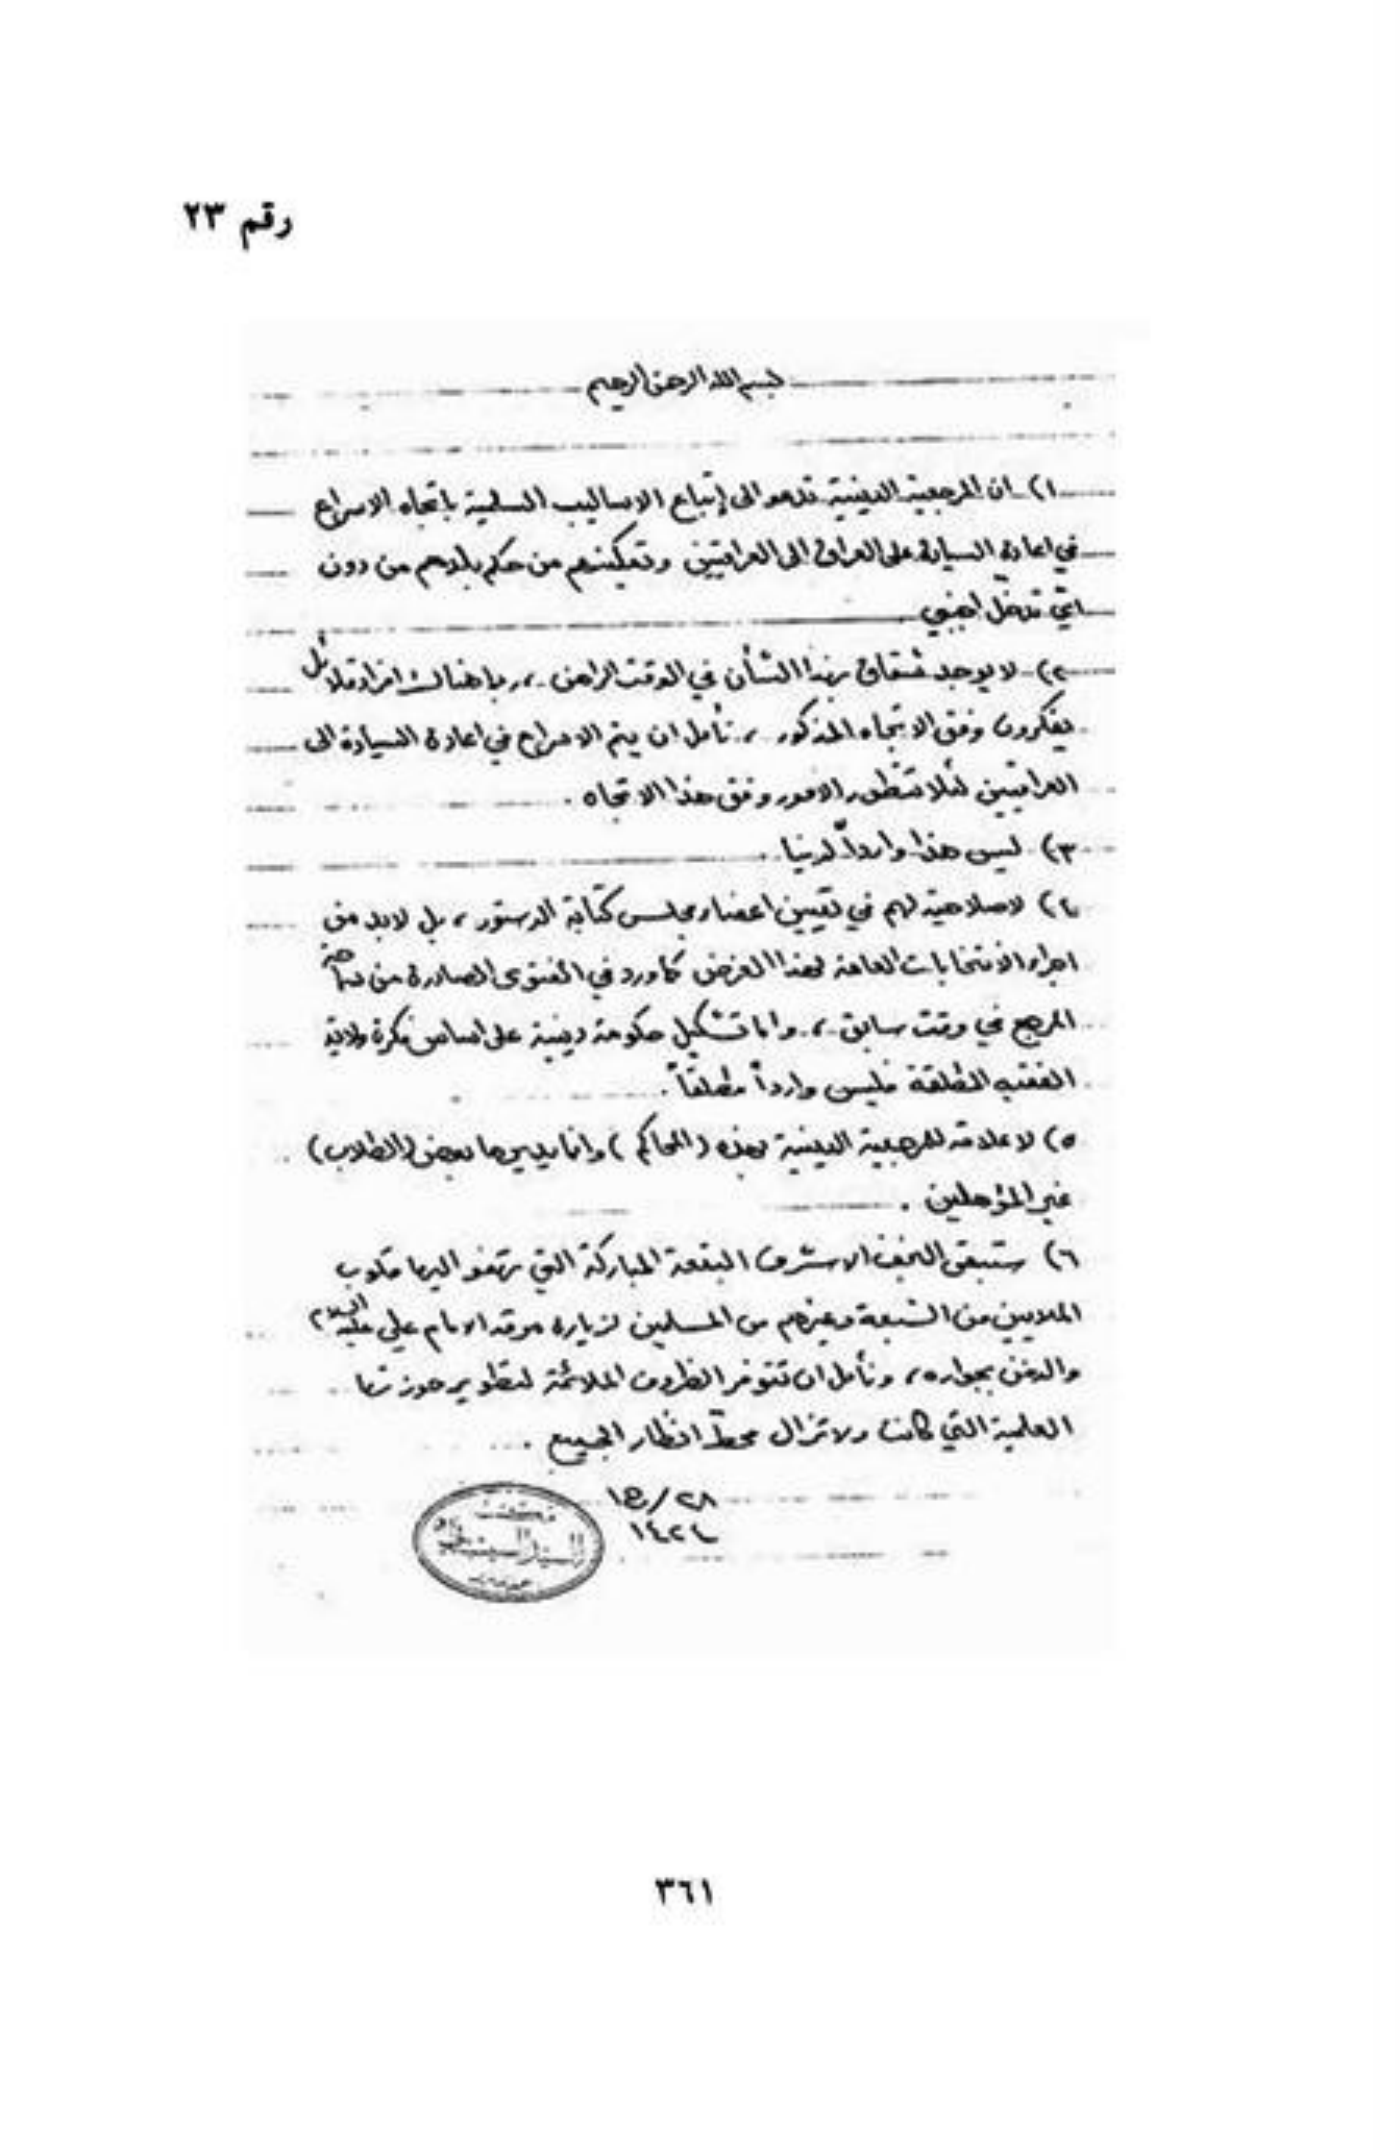 رقم ٢٣
بسم الله الرحمن الرحيم
١) ان المرجعية الدينية تدعو الى إتباع الاساليب السلمية باتجاه الاسراع
في اعادة السيادة على العراق الى العراقيين وتمكينهم من حكم بلدهم من دون
ايّ تدخّل اجنبي .
٢) لا يوجد شقاق بهذا الشأن في الوقت الراهن ، ربما هناك افراد قلائل
يفكرون وفق الاتجاه المذكور ، نأمل ان يتم الاسراع في اعادة السيادة الى
العراقيين لئلا تتطور الامور وفق هذا الاتجاه .
٣) ليس هذا وارداً لدينا .
٤) لا صلاحية لهم في تعيين اعضاء مجلس كتابة الدستور ، بل لابد من
اجراء الانتخابات العامة لهذا الغرض كما ورد في الفتوى الصادرة من سماحة
المرجع في وقت سابق ، واما تشكيل حكومة دينية على اساس فكرة ولاية
الفقيه المطلقة فليس وارداً مطلقاً .
٥) لا علاقة للمرجعية الدينية بهذه (المحاكم) وانما يديرها بعض (الطلاب)
غير المؤهلين .
٦) ستبقى النجف الاشرف البقعة المباركة التي تهفو اليها قلوب
الملايين من الشيعة وغيرهم من المسلمين لزيارة مرقد الامام علي عليه السلام
والدفن بجواره ، ونأمل ان تتوفر الظروف الملائمة لتطوير حوزتها
العلمية التي كانت ولا تزال محطّ انظار الجميع .
٢٨/ج١
١٤٢٤
مكتب
السيد السيستاني
٣٦١